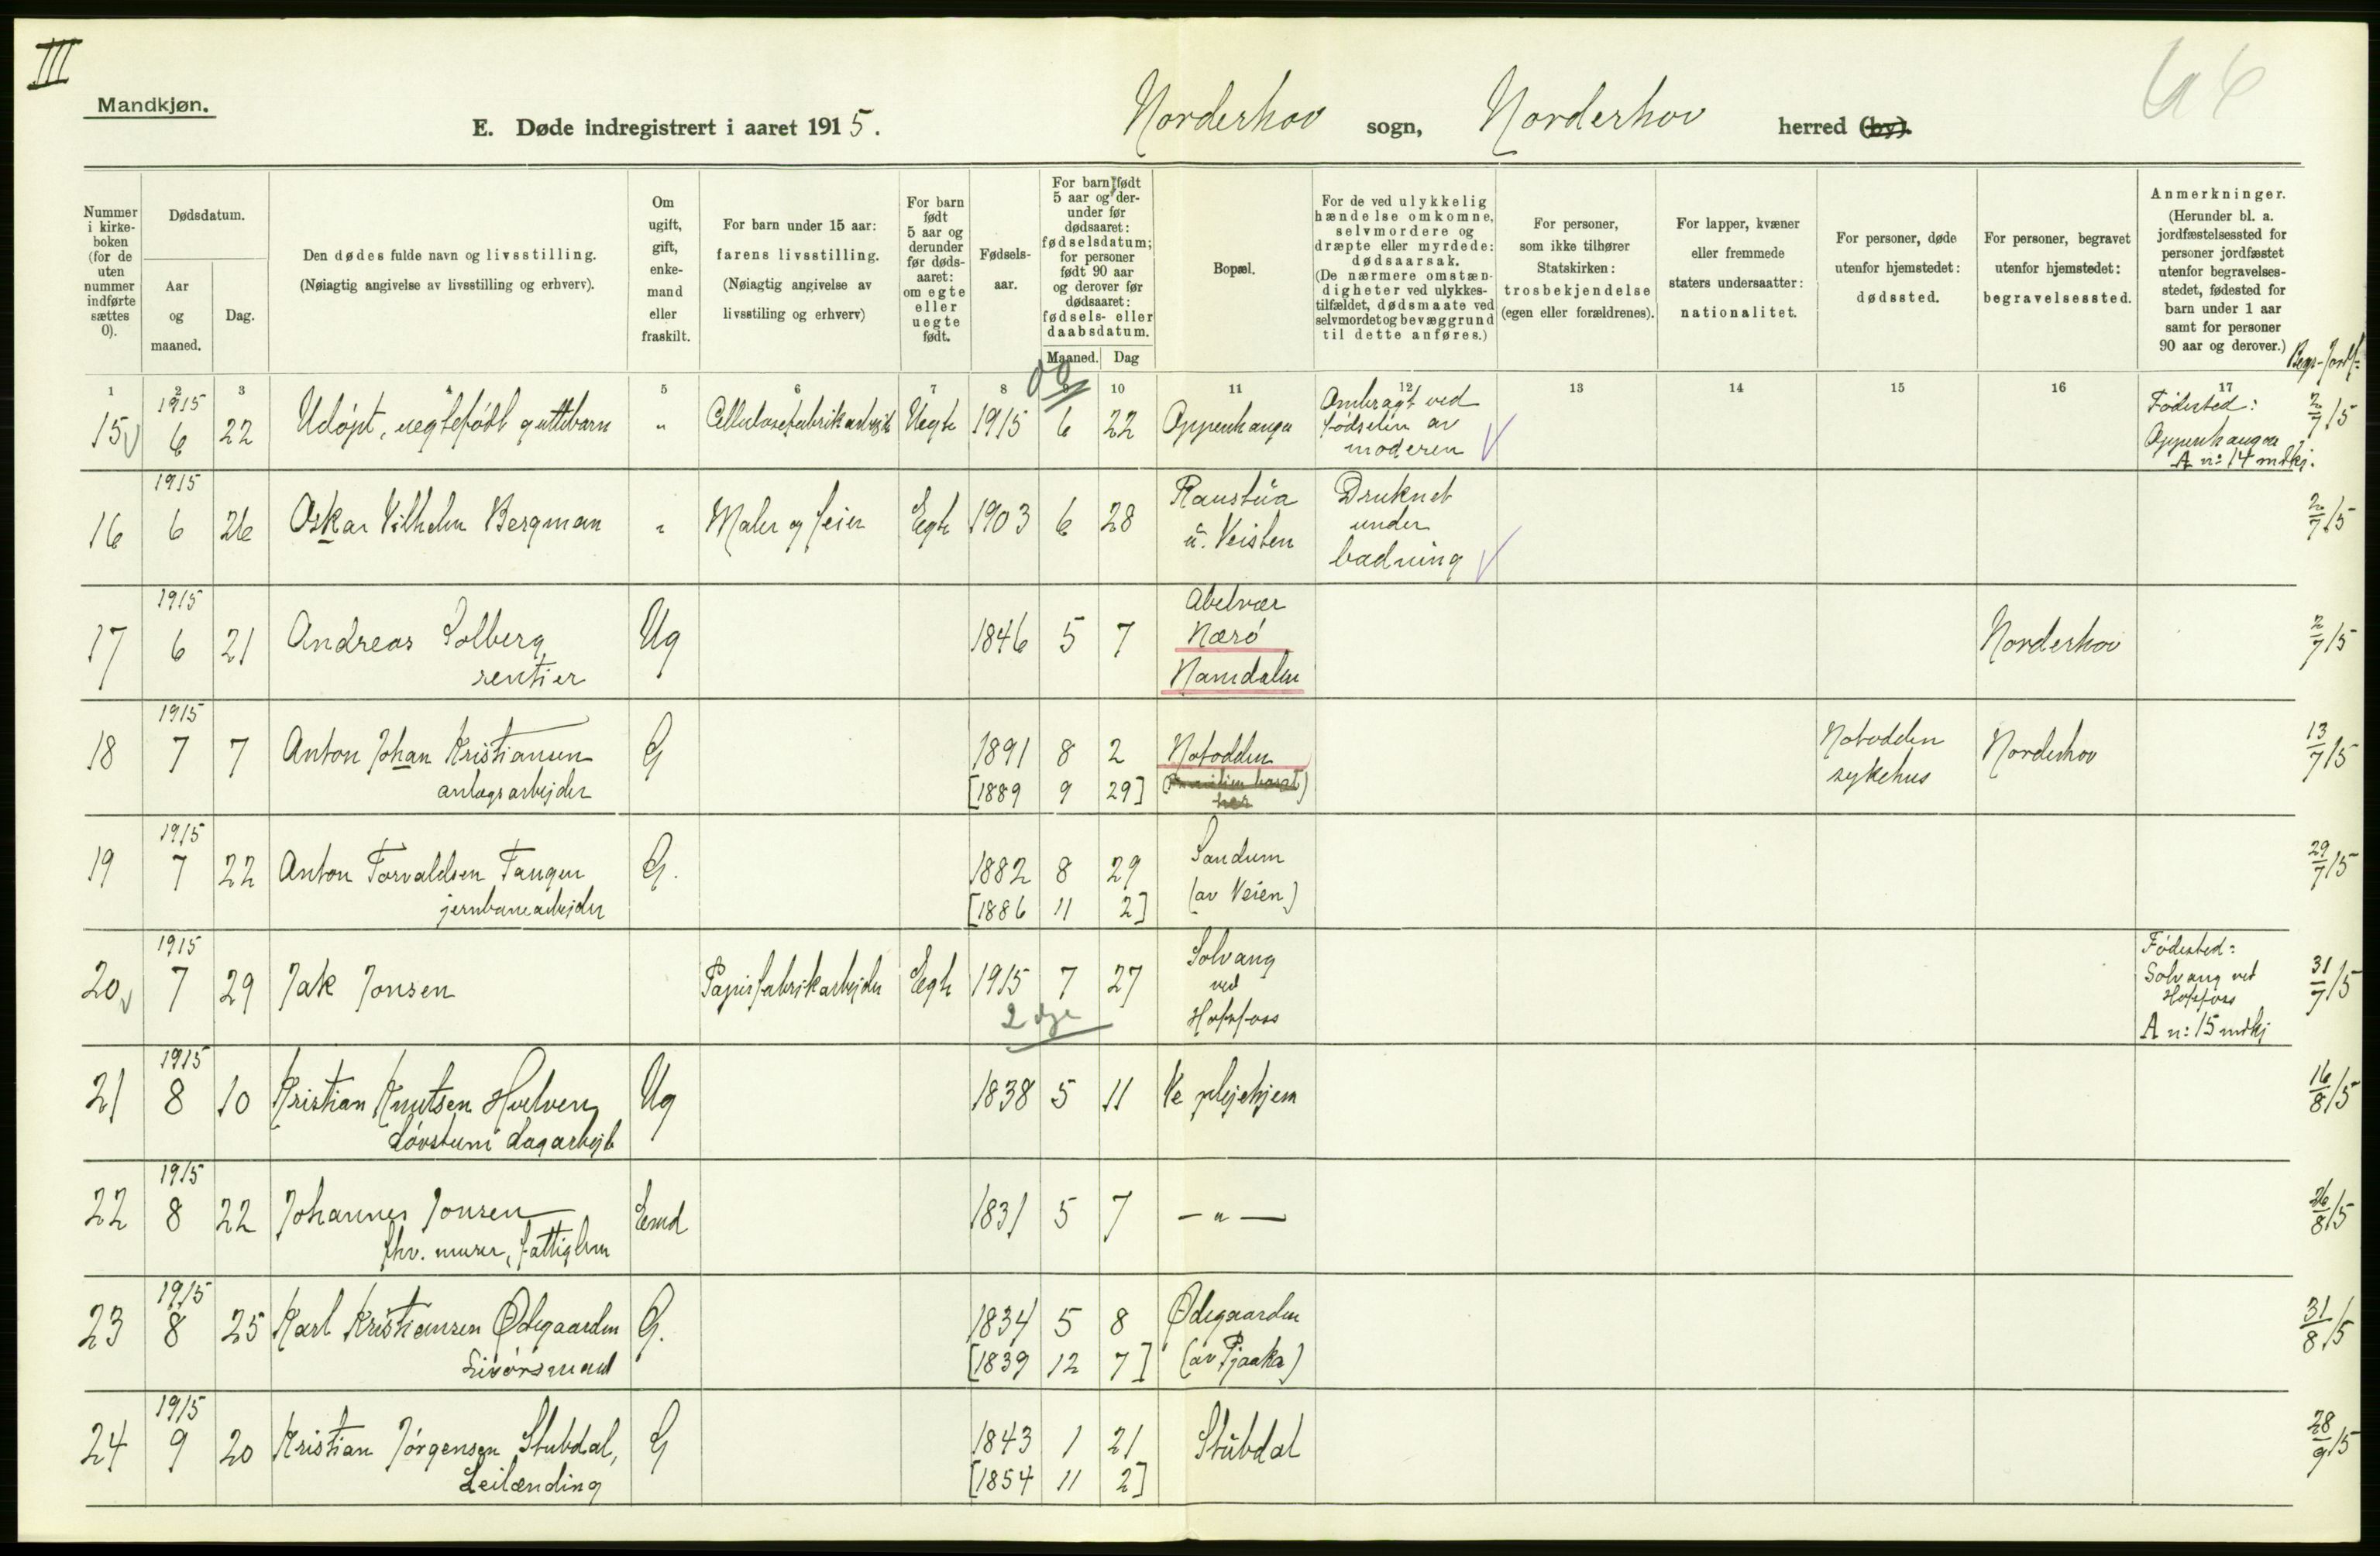 III
Mandkjøn.
66
E. Døde indregistrert i aaret 1915.
Norderhov sogn, Norderhov herred (by).
Nummer i kirke-boken (for de uten nummer indførte sættes 0).
Dødsdatum.
Aar og maaned.
Dag.
Den dødes fulde navn og livsstilling.
(Nøiagtig angivelse av livsstilling og erhverv).
Om ugift, gift, enke-mand eller fraskilt.
For barn under 15 aar: farens livsstilling.
(Nøiagtig angivelse av livsstiling og erhverv)
For barn født 5 aar og derunder før døds-aaret: om egte eller uegte født.
Fødsels-aar.
For barn født 5 aar og der-under før dødsaaret: fødselsdatum; for personer født 90 aar og derover før dødsaaret: fødsels- eller daabsdatum.
Maaned. Dag
Bopæl.
For de ved ulykkelig hændelse omkomne, selvmordere og dræpte eller myrdede: dødsaarsak.
(De nærmere omstæn-digheter ved ulykkes-tilfældet, dødsmaate ved selvmordet og bevæggrund til dette anføres.)
For personer, som ikke tilhører Statskirken: trosbekjendelse (egen eller forældrenes).
For lapper, kvæner eller fremmede staters undersaatter: nationalitet.
For personer, døde utenfor hjemstedet: dødssted.
For personer, begravet utenfor hjemstedet: begravelsessted.
Anmerkninger.
(Herunder bl. a. jordfæstelsessted for personer jordfæstet utenfor begravelses-stedet, fødested for barn under 1 aar samt for personer 90 aar og derover.)
1 2 3 4 5 6 7 8 9 10 11 12 13 14 15 16 17
15 1915 6 22 Udøpt, uegtefødt guttebarn " Cellulosefabrikarbejd Uegte 1915 6 22 Oppenhaugen
Ombragt ved
fødselen av
moderen
Fødested:
Oppenhaugen
A n: 14 mdkj.
2/7 15
16 1915 6 26 Oskar Vilhelm Bergman " Maler og feier Egte 1903 6 28
Raustua
u. Veisten
Druknet
under
badning
2/7 15
17 1915 6 21 Andreas Solberg
rentier
Ug 1846 5 7
Abelvær
Nærø
Namdalen
Norderhov 2/7 15
18 1915 7 7 Anton Johan Kristiansen
anlægsarbejder
G 1891 8 2
[1889 9 29]
Notodden
Notodden
sykehus
Norderhov 13/7 15
19 1915 7 22 Anton Torvaldsen Tangen
jernbanearbejder
G. 1882 8 29
[1886 11 2]
Sandum
(av Veien)
29/7 15
20 1915 7 29 Jak Jonsen Papirfabrikarbejder Egte 1915 7 27
2 dge
Solvang
ved
Hofsfoss
Fødested:
Solvang ved
Hofsfoss
A n: 15 mdkj
31/7 15
21 1915 8 10 Kristian Knutsen Hvelven
døvstum dagarbejd
Ug 1838 5 11 Ve plejehjem 16/8 15
22 1915 8 22 Johannes Jonsen
fhv. murer, fattiglem
Emd 1831 5 7 — " — 26/8 15
23 1915 8 25 Karl Kristiansen Ødegaarden
Livørsmand
G. 1834 5 8
[1839 12 7]
Ødegaarden
(av Pjaaka)
31/8 15
24 1915 9 20 Kristian Jørgensen Stubdal,
Leilænding
G 1843 1 21
[1854 11 2]
Stubdal
28/9 15